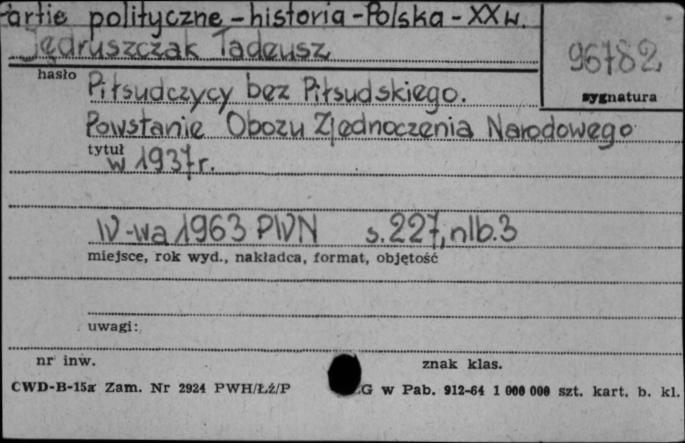 Partie polityczne - historia - Polska - XX w.
Jędruszczak Tadeusz
96782
hasło
sygnatura
Piłsudczycy bez Piłsudskiego.
Powstanie Obozu Zjednoczenia Narodowego
tytuł
w 1937 r.
W-wa 1963 PWN s. 227, nlb. 3
miejsce, rok wyd., nakładca, format, objętość
uwagi:
nr inw.
znak klas.
CWD-B-15a Zam. Nr 2924 PWH/Łź/P
G w Pab. 912-64 1 000 000 szt. kart. b. kl.